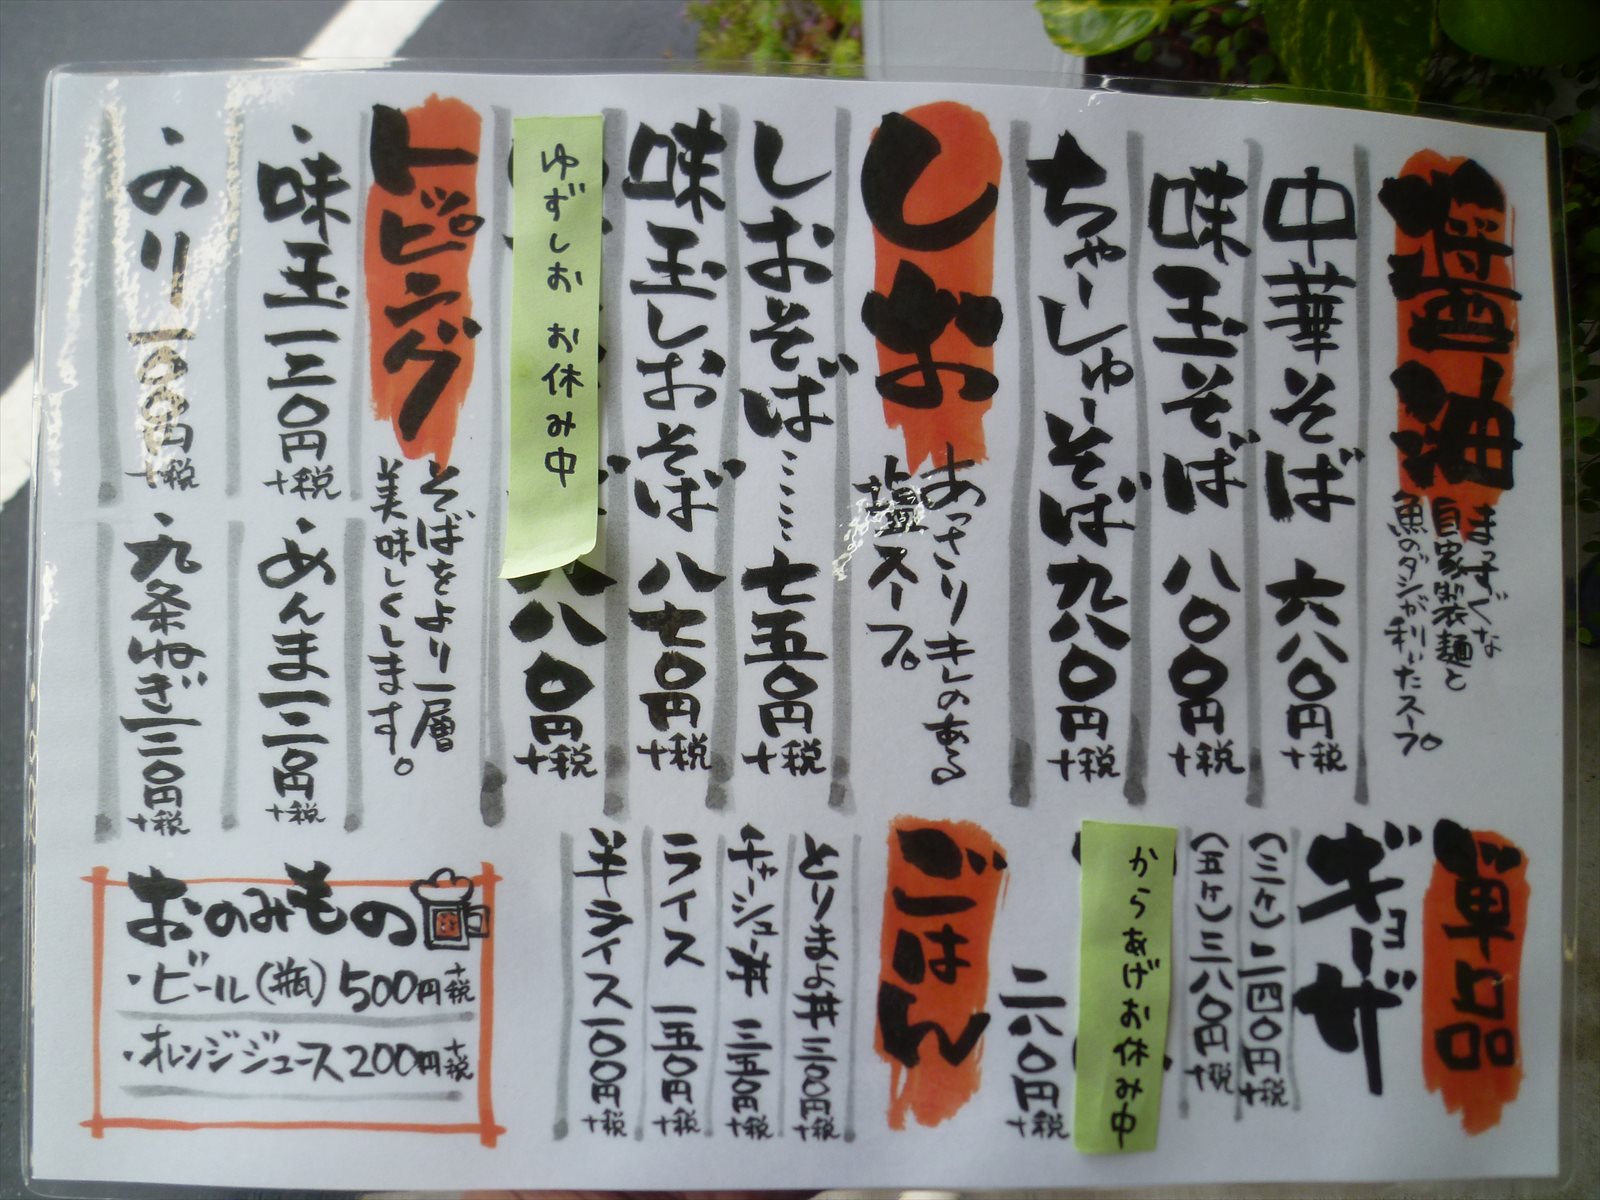 醤油
まっすぐな
自家製麺と
魚のダシが利いたスープ。
中華そば 六八〇円+税
味玉そば 八〇〇円+税
ちゃーしゅーそば 九八〇円+税
しお
あっさりキレのある
塩スープ。
しおそば……七五〇円+税
味玉しおそば 八七〇円+税
ゆずしお お休み中
八八〇円+税
トッピング
そばをより一層
美味しくします。
・味玉一三〇円+税
・めんま一二〇円+税
・のり一〇〇円+税
・九条ねぎ一二〇円+税
単品
ギョーザ
(三ヶ)二四〇円+税
(五ヶ)三八〇円+税
からあげお休み中
二六〇円+税
ごはん
とりまよ丼 三〇〇円+税
チャーシュー丼 三五〇円+税
ライス 一五〇円+税
半ライス 一〇〇円+税
おのみもの
・ビール(瓶)500円+税
・オレンジジュース200円+税